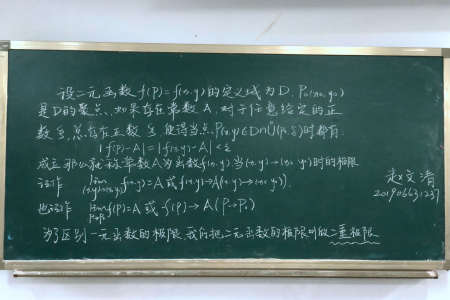 设二元函数f(P)=f(x,y)的定义域为D, P₀(x₀,y₀)
是D的聚点、如果存在常数A,对于任意给定的正
数ε,总存在正数δ,使得当点P(x,y)∈D∩Ů(P₀,δ)时都有
|f(P)-A|=|f(x,y)-A|<ε
成立,那么就称常数A为函数f(x,y)当(x,y)→(x₀,y₀)时的极限
记作 lim(x,y)→(x₀,y₀) f(x,y)=A 或 f(x,y)→A((x,y)→(x₀,y₀)).
也记作 lim P→P₀ f(P)=A 或 f(P)→A(P→P₀)
为了区别一元函数的极限,我们把二元函数的极限叫做二重极限
赵文清